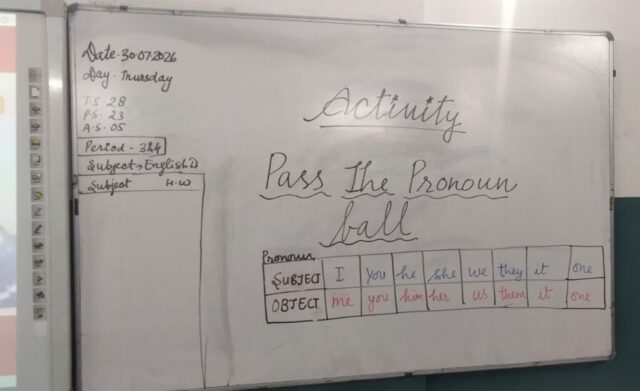 Date. 30-07-2026
Day. Thursday
T.S. 28
P.S. 23
A.S. 05
Period - 3&4
Subject → English
Subject H.W
Activity
Pass The Pronoun
ball
Pronouns
SUBJECT I you he she we they it one
OBJECT me you him her us them it one